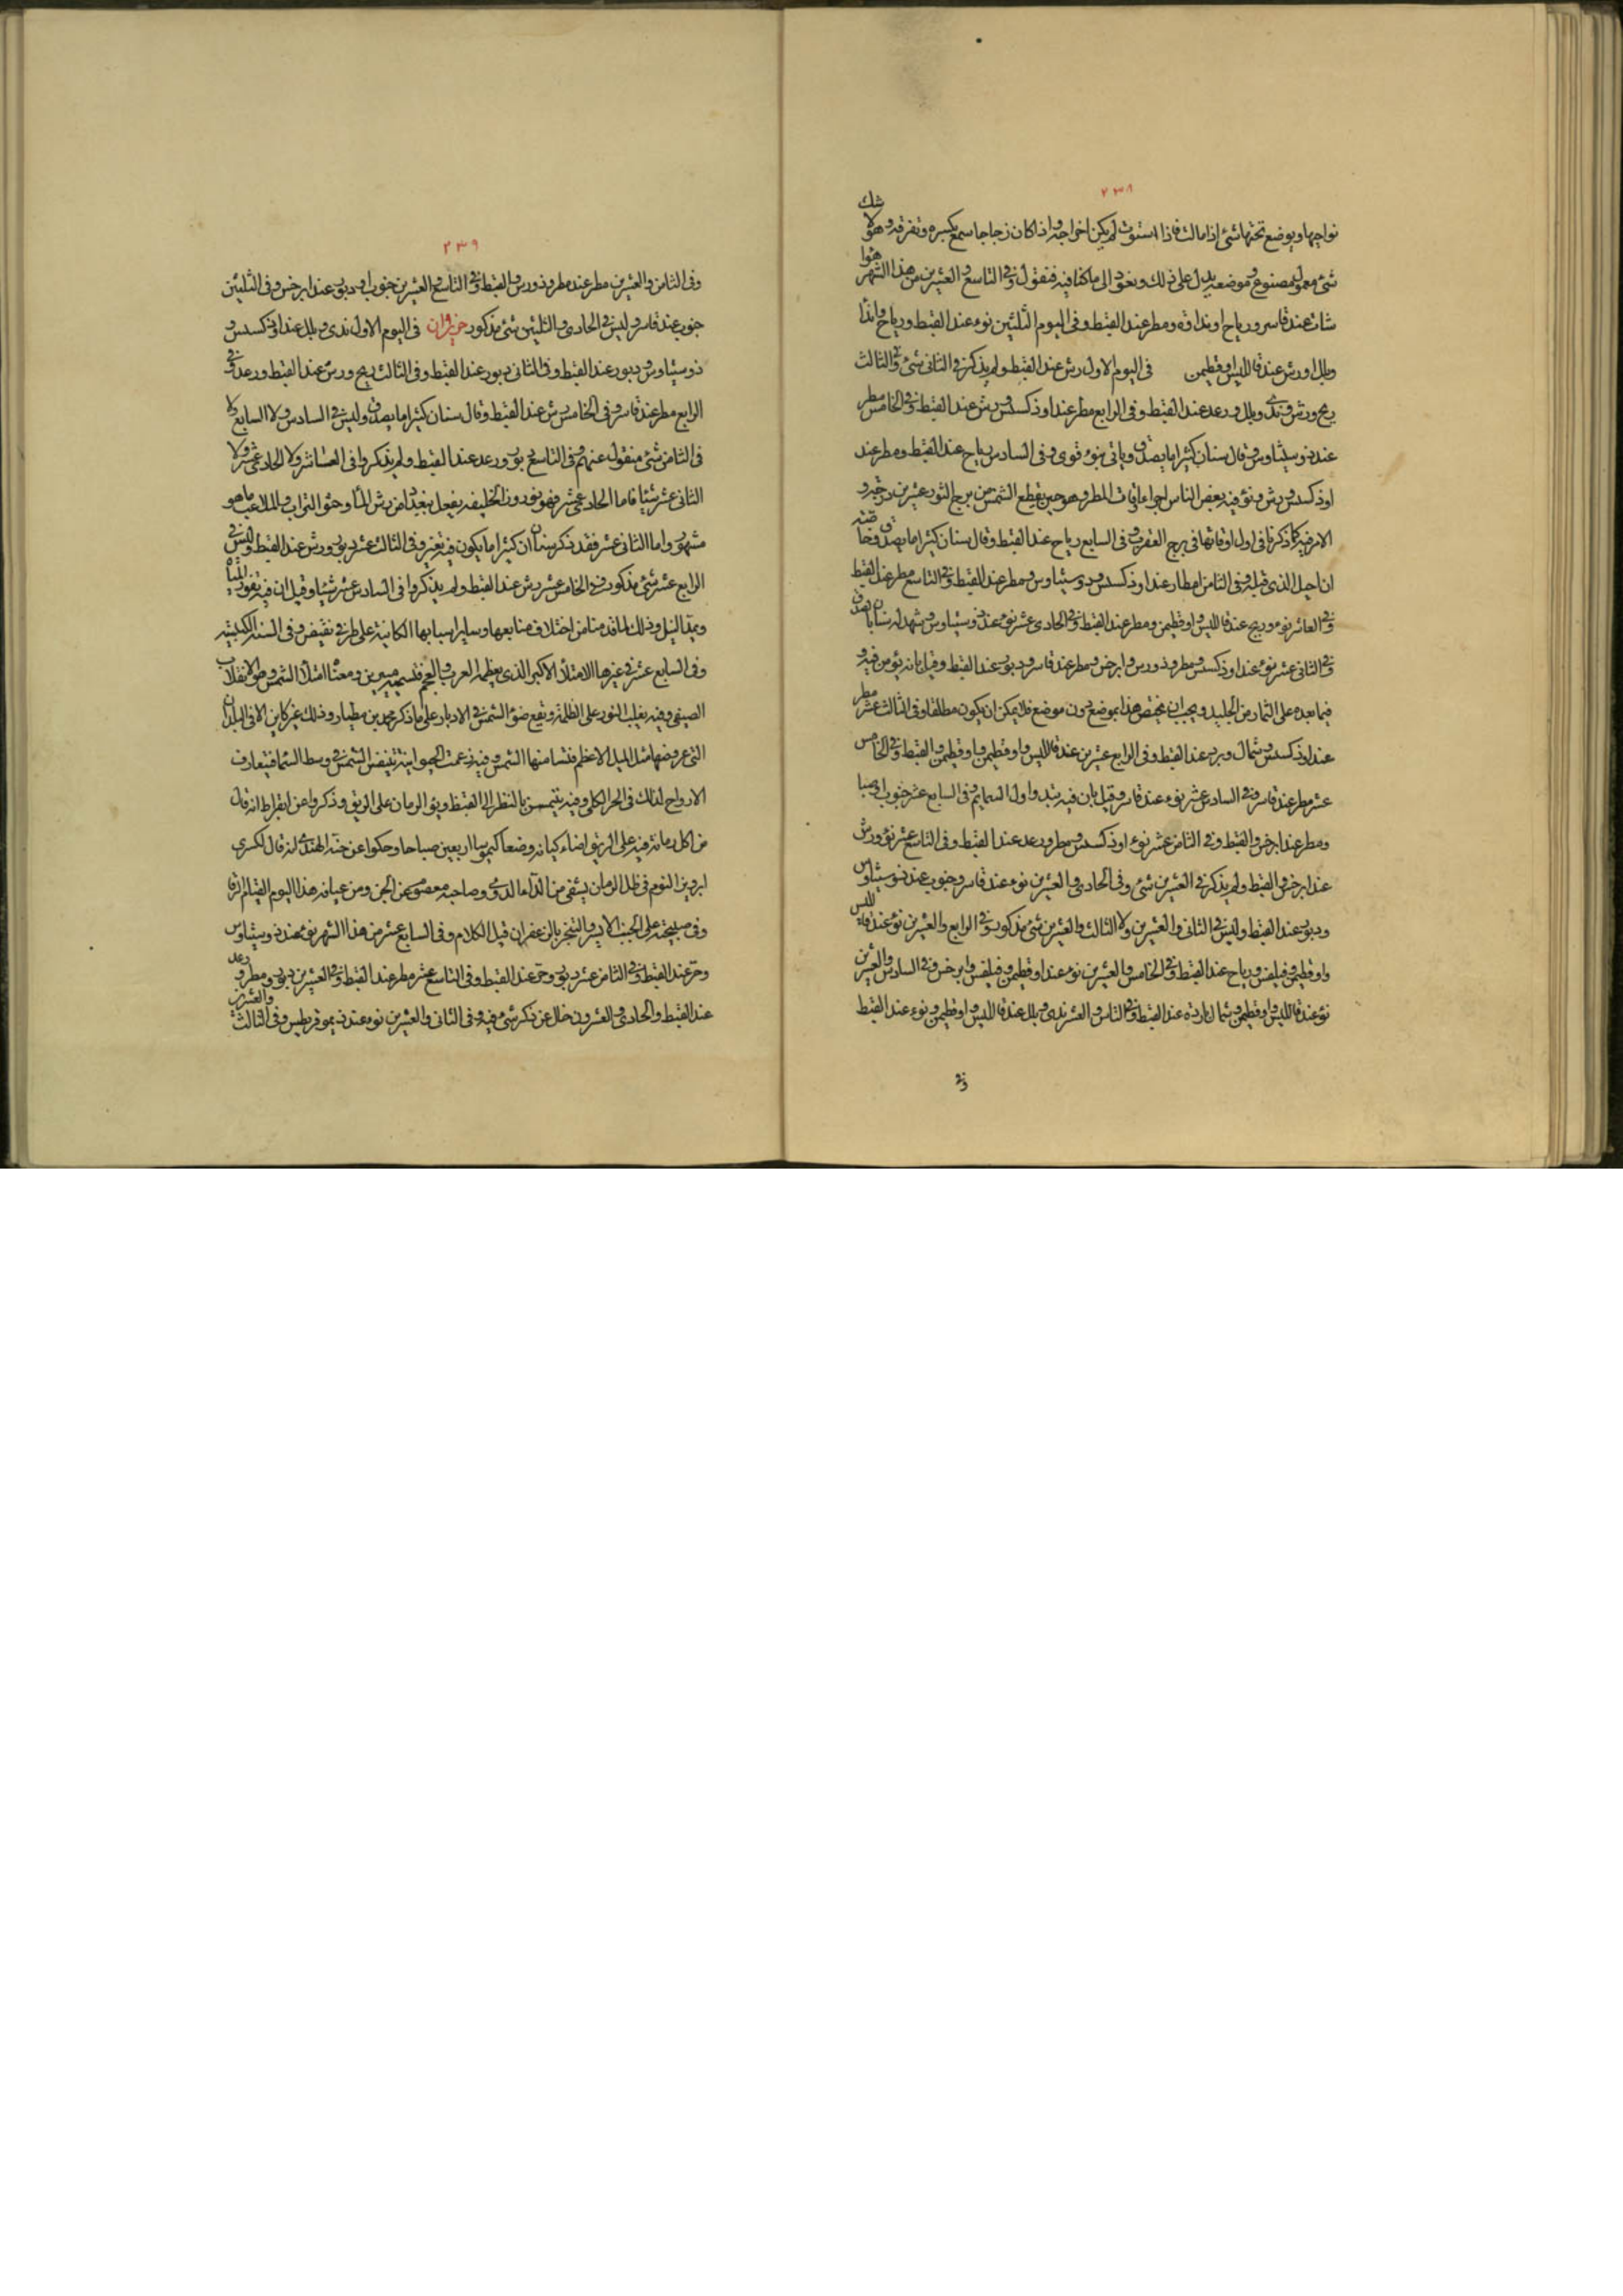 ٢٣٨
نواحيها ويوضع تحتها شئ اذا مالت فاذا استوت لم يكن اخراجه واذا كان زجاجا سمع كسره وتفرقه وهو لا شك
شئ معمول مصنوع وموضعه يدل على ذلك ونعود الى ما كنا فيه فنقول وفى التاسع والعشرين من هذا الشهر هوا
شات عند قاسر ورياح او نداوة ومطر عند القبط وفى اليوم الثلثين نوء عند القبط ورياح واندا
وبلل اورش عند قالليس واوقطيمن فى اليوم الاول رش عند القبط ولم يذكر فى الثانى شئ وفى الثالث
ريح ورش وندى وبلل ورعد عند القبط وفى الرابع مطر عند اوذكسس ورش عند القبط وفى الخامس مطر
عند ذوسيثاوس وقال سنان كثيرا ما يصدق وياتى بنوء قوى وفى السادس رياح عند القبط ومطر عند
اوذكسس ورش ونوء فيه بعض الناس اجراء اوقات المطر وهو حين يقطع الشمس من برج الثور عشرين درجة و
الامر فيه كما ذكرنا فى اول اوقاتها فى برج العقرب وفى السابع رياح عند القبط وقال سنان كثيرا ما يصدق وخاصته
ان اجل الذى قبله وفى الثامن امطار عند اوذكسس ودوسيثاوس ومطر عند القبط وفى التاسع مطر عند القبط
وفى العاشر نوء وريح عند قالليس واوقطيمن ومطر عند القبط وفى الحادى عشر نوء عند ذوسيثاوس وشهد له سنان بالصدق
وفى الثانى عشر نوء عند اوذكسس ومطروذورس وابرخس ومطر عند قاسر ودبور عند القبط وقيل بانه يؤمن فيه و
فيما بعده على الثمار من الجليد ويجب ان يختص هذا بموضع دون موضع فلا يمكن ان يكون مطلقا وفى الثالث عشر مطر
عند اوذكسس وشمال وبرد عند القبط وفى الرابع عشر عند قالليس واوقطيمن واوقطيمن والقبط وفى الخامس
عشر مطر عند قاسر وفى السادس عشر نوء عند قاسر وقيل بان فيه يبتدى اول السمايم وفى السابع عشر جنوب او صبا
ومطر عند ابرخس والقبط وفى الثامن عشر نوء اوذكسس ومطر ورعد عند القبط وفى التاسع عشر نوء ورش
عند ابرخس والقبط ولم يذكر فى العشرين شئ وفى الحادى والعشرين نوء عند قاسر وجنوب عند ذوسيثاوس
ودبور عند القبط وليس فى الثانى والعشرين ولا الثالث والعشرين شئ مذكور وفى الرابع والعشرين نوء عند قالليس
واوقطيمن وفيلفس ورياح عند القبط وفى الخامس والعشرين نوء عند اوقطيمن وفيلفس وابرخس وفى السادس والعشرين
نوء عند قالليس واوقطيمن وشمال باردة عند القبط وفى الثامن والعشر ندى وبلل عند قالليس واوقطيمن ونوء عند القبط
وفى
٢٣٩
وفى الثامن والعشرين مطر عند مطروذورس والقبط وفى التاسع والعشرين جنوب او دبور عند ابرخس وفى الثلثين
جنوب عند قاسر وليس فى الحادى والثلثين شئ مذكور حزيران فى اليوم الاول ندى وبلل عند اوذكسس و
ذوسيثاوس ودبور عند القبط وفى الثانى دبور عند القبط وفى الثالث ريح ورش عند القبط ورعد وفى
الرابع مطر عند قاسر وفى الخامس رش عند القبط وقال سنان كثيرا ما يصدق وليس فى السادس ولا السابع ولا
فى الثامن شئ منقول عنهم وفى التاسع دبور ورعد عند القبط ولم يذكروا فى العاشر ولا الحادى عشر ولا
الثانى عشر شيئا فاما الحادى عشر فهو نوروز الخليفة يفعل ببغداد من رش الماء وحثو التراب والملاعب ما هو
مشهور واما الثانى عشر فقد ذكر سنان ان كثيرا ما يكون فيه تغير وفى الثالث عشر دبور ورش عند القبط وليس فى
الرابع عشر شئ مذكور وفى الخامس عشر رش عند القبط ولم يذكروا فى السادس عشر شيئا وقيل ان فيه تغور المياه
ويمد النيل وذلك لما قدمنا من اختلاف منابعها وساير اسبابها الكاينة على طرفى نقيض وفى السنة الكبيسة
وفى السابع عشر فى غيرها الامتلاء الاكبر الذى يعظمه العرب والعجم فتسميه ميرين ومعناه امتلاء الشمس وهو الانقلاب
الصيفى وفيه يغلب النور على الظلمة ويقع ضوء الشمس فى الابار على ما ذكر محمد بن مطيار وذلك غير كاين الا فى البلدان
التى عروضها مثل الميل الاعظم فتسامتها الشمس وفيه زعمت الجيوانية تتنفس الشمس فى وسط السما فيتعارف
الارواح لذلك فى الحر الكلى وفيه يتيمن بالنظر الى القبط وبقى الرمان على الريق وذكروا عن ابقراط انه قال
من اكل رمانة فيه على الريق اضاء كيانه وصفا كيموسها اربعين صباحا وحكوا عن حنه الهندى انه قال لكسرى
ابرويز النوم فى ظل الرمان يشفى من الداء الدوى وصاحبه معصوم من الجن ومن عيافة هذا اليوم القيام لرقا
وفى صبيحته على الجنب الايسر والتبخر بالزعفران قبل الكلام وفى السابع عشر من هذا الشهر نوء عند ذوسيثاوس
وحر عند القبط وفى الثامن عشر دبور وحر عند القبط وفى التاسع عشر مطر عند القبط وفى العشرين دبور ومطر ورعد
عند القبط والحادى والعشرون خال عن ذكر شئ فيه وفى الثانى والعشرين نوء عند ذيموقريطس وفى الثالث والعشرين